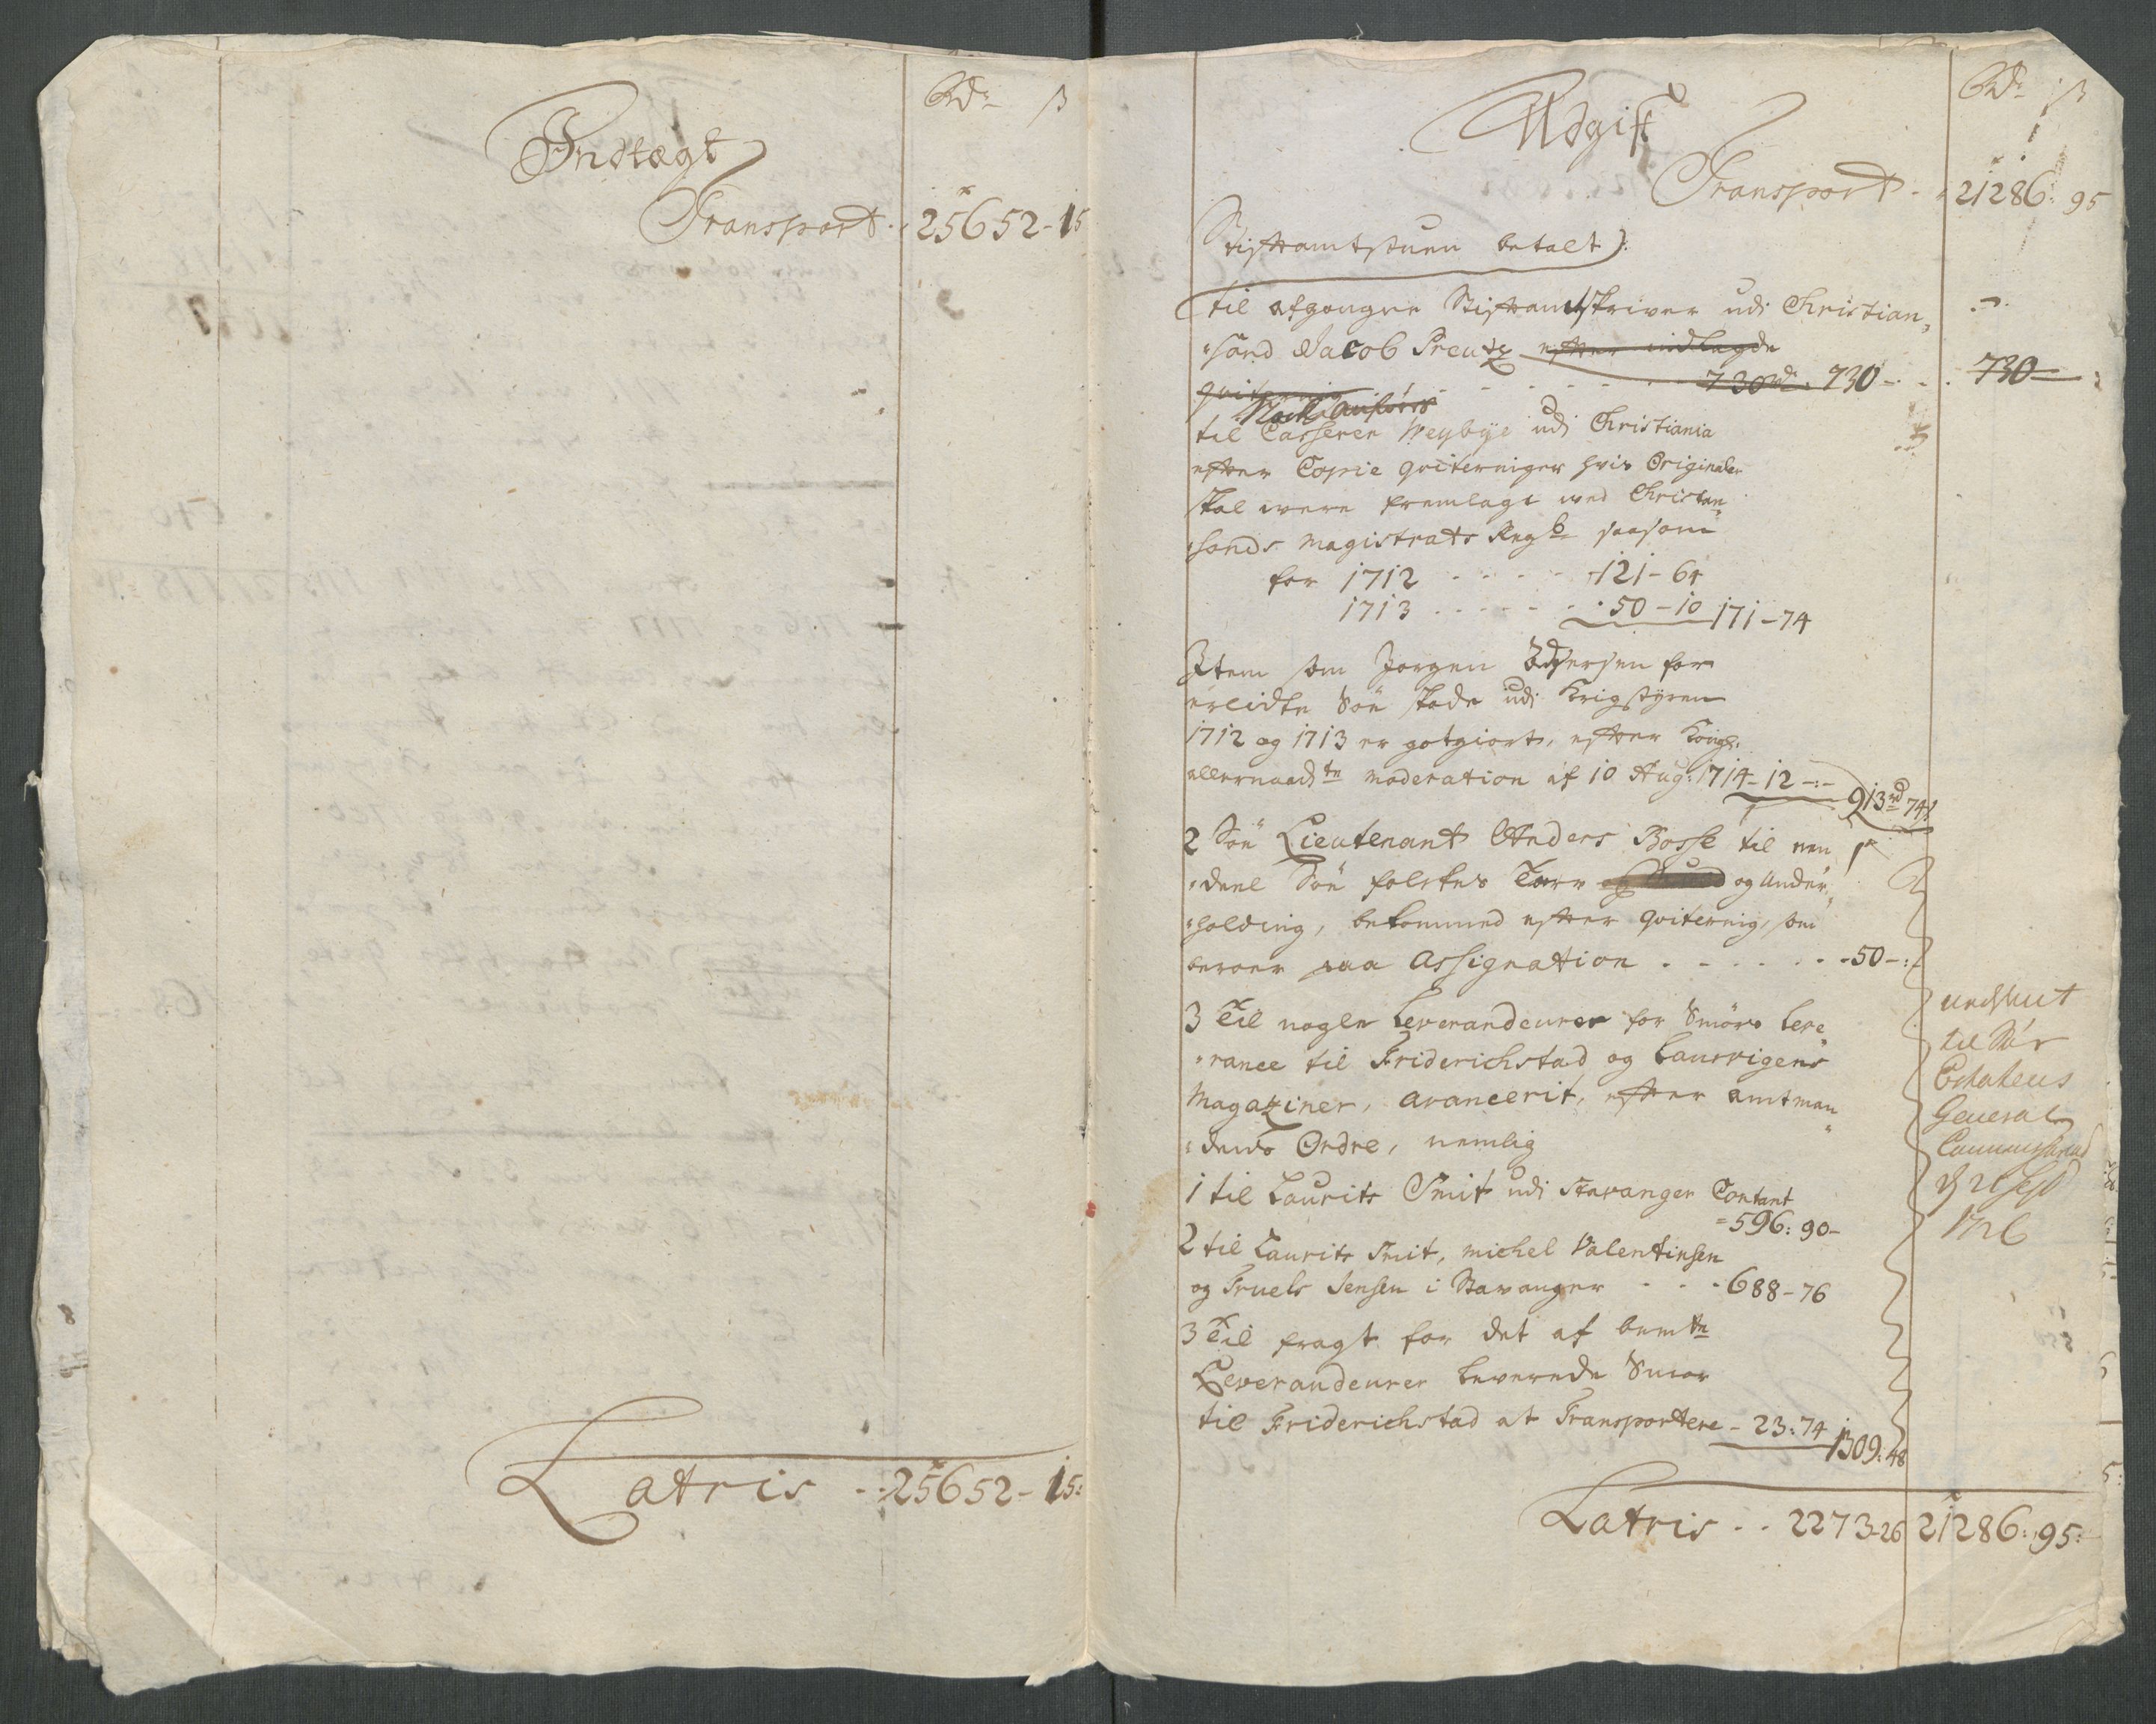 Rdr ß
Indtægt
Transport . . 25652 - 15
Latris - . 25652 - 15:
Rdr ß
Udgift
Transport - . 21286: 95
Stiftamtstuen betalt):
til afgangne Stiftamtskriver udi Christian„
„sand Jacob Preutz efter indlagde
qvitering - - - - - 730rd. 730 - . . 730 —
til Casseren Weybye udi Christiania
efter Copie qviteringer hvis Originaler
skal were fremlagt wed Christian„
„sands Magistrats Regsb saasom
for 1712 - - - - - 121 - 64
1713 - - - - - 50 - 10 171 - 74
Item som Jorgen for
erlidte Søe skade udi Krigstyren
1712 og 1713 er gotgiort, efter Kongl:
allernaadste moderation af 10 Aug: 1714 - 12 -:-
913rd 74ß
2 Søe Lieutenant Anders Bosse til een
„deel Søe folckes Torr og Under„
„holding, bekommed efter qvitering, som
beroer paa Assignation - - - - - 50 -:-
3 Til nogle Leverandeurer for Smørs Leve„
„rance til Friderichstad og Laurvigens
Magaziner, avancerit, efter amtman„
„dens Ordre, nemlig
1 til Laurits Smit udi Stavanger Contant
= 596: 90 -
2 til Laurits Smit, Michel Valentinsen
og Truels Jensen i Stavanger - - - 688 - 76
3 Til fragt for det af bemte
Leverandeurer leverede Smør
til Friderichstad at Transportere - 23: 74
1309: 48
til Søe
Etatens
General
1726
Latris - . 2273-26 21286: 95: